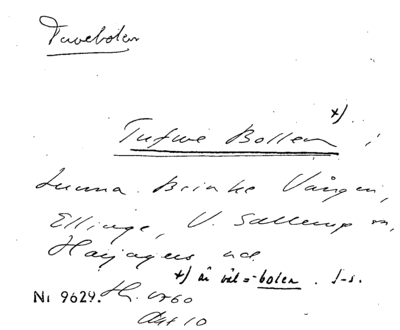 Tuvebolen
x)
Tufwe Bollen i
Brinke Vången,
Ellinge, V. Sallerup sn,
Harjagers hd
x) är väl = bolen. J-s.
Nr 9629. 1760
Akt 10